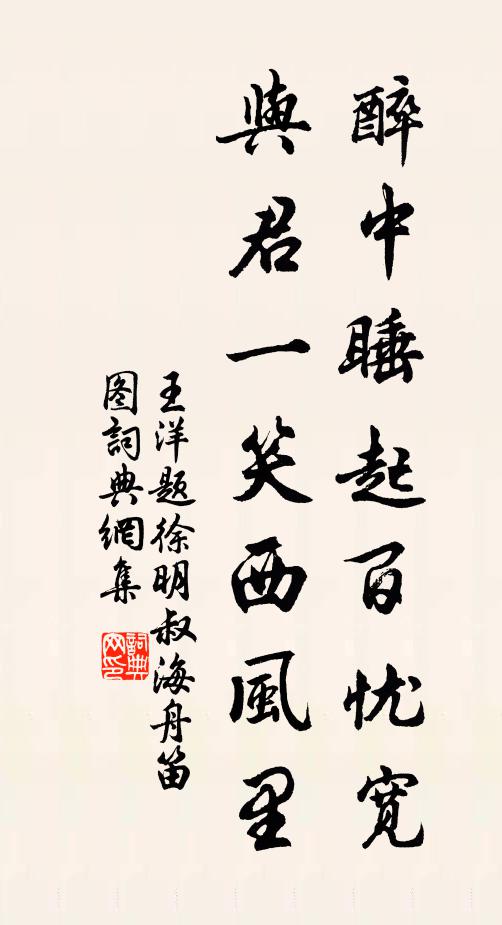 醉中睡起百忧寬
與君一笑西風里
王洋題徐明叔海舟笛
图詞典網集
詞典